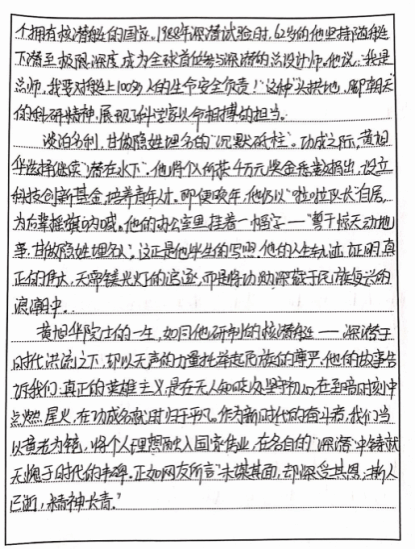 个拥有核潜艇的国家。1988年深潜试验时,62岁的他坚持随艇
下潜至极限深度,成为全球首位参与深潜的总设计师。他说:"我是
总师,我要对艇上100多人的生命安全负责!"这种"头拱地、脚朝天"
的科研精神,展现了科学家以命相搏的担当。
淡泊名利,甘做隐姓埋名的"沉默砥柱"。功成之际,黄旭
华选择继续"潜在水下"。他将个人所获千万元奖金悉数捐出,设立
科技创新基金,培养青年人才。即便晚年,他仍以"啦啦队长"自居,
为后辈摇旗呐喊。他的办公室里挂着一幅字——"誓干惊天动地
事,甘做隐姓埋名人"。这正是他半生的写照。他的人生轨迹证明,真
正的伟大,无需镁光灯的追逐,而是将功勋深藏于民族复兴的
浪潮中。
黄旭华院士的一生,如同他研制的核潜艇——深潜于
时代洪流之下,却以无声的力量托举起民族的尊严。他的故事告
诉我们:真正的英雄主义,是在无人知晓处坚守初心,在至暗时刻中
点燃星火,在功成名就时归于平凡。作为新时代的奋斗者,我们当
以黄老为镜,将个人理想融入国家伟业,在各自的"深潜"中铸就
无愧于时代的丰碑。正如网友所言"未谋其面,却深受其恩;斯人
已逝,精神长青。"